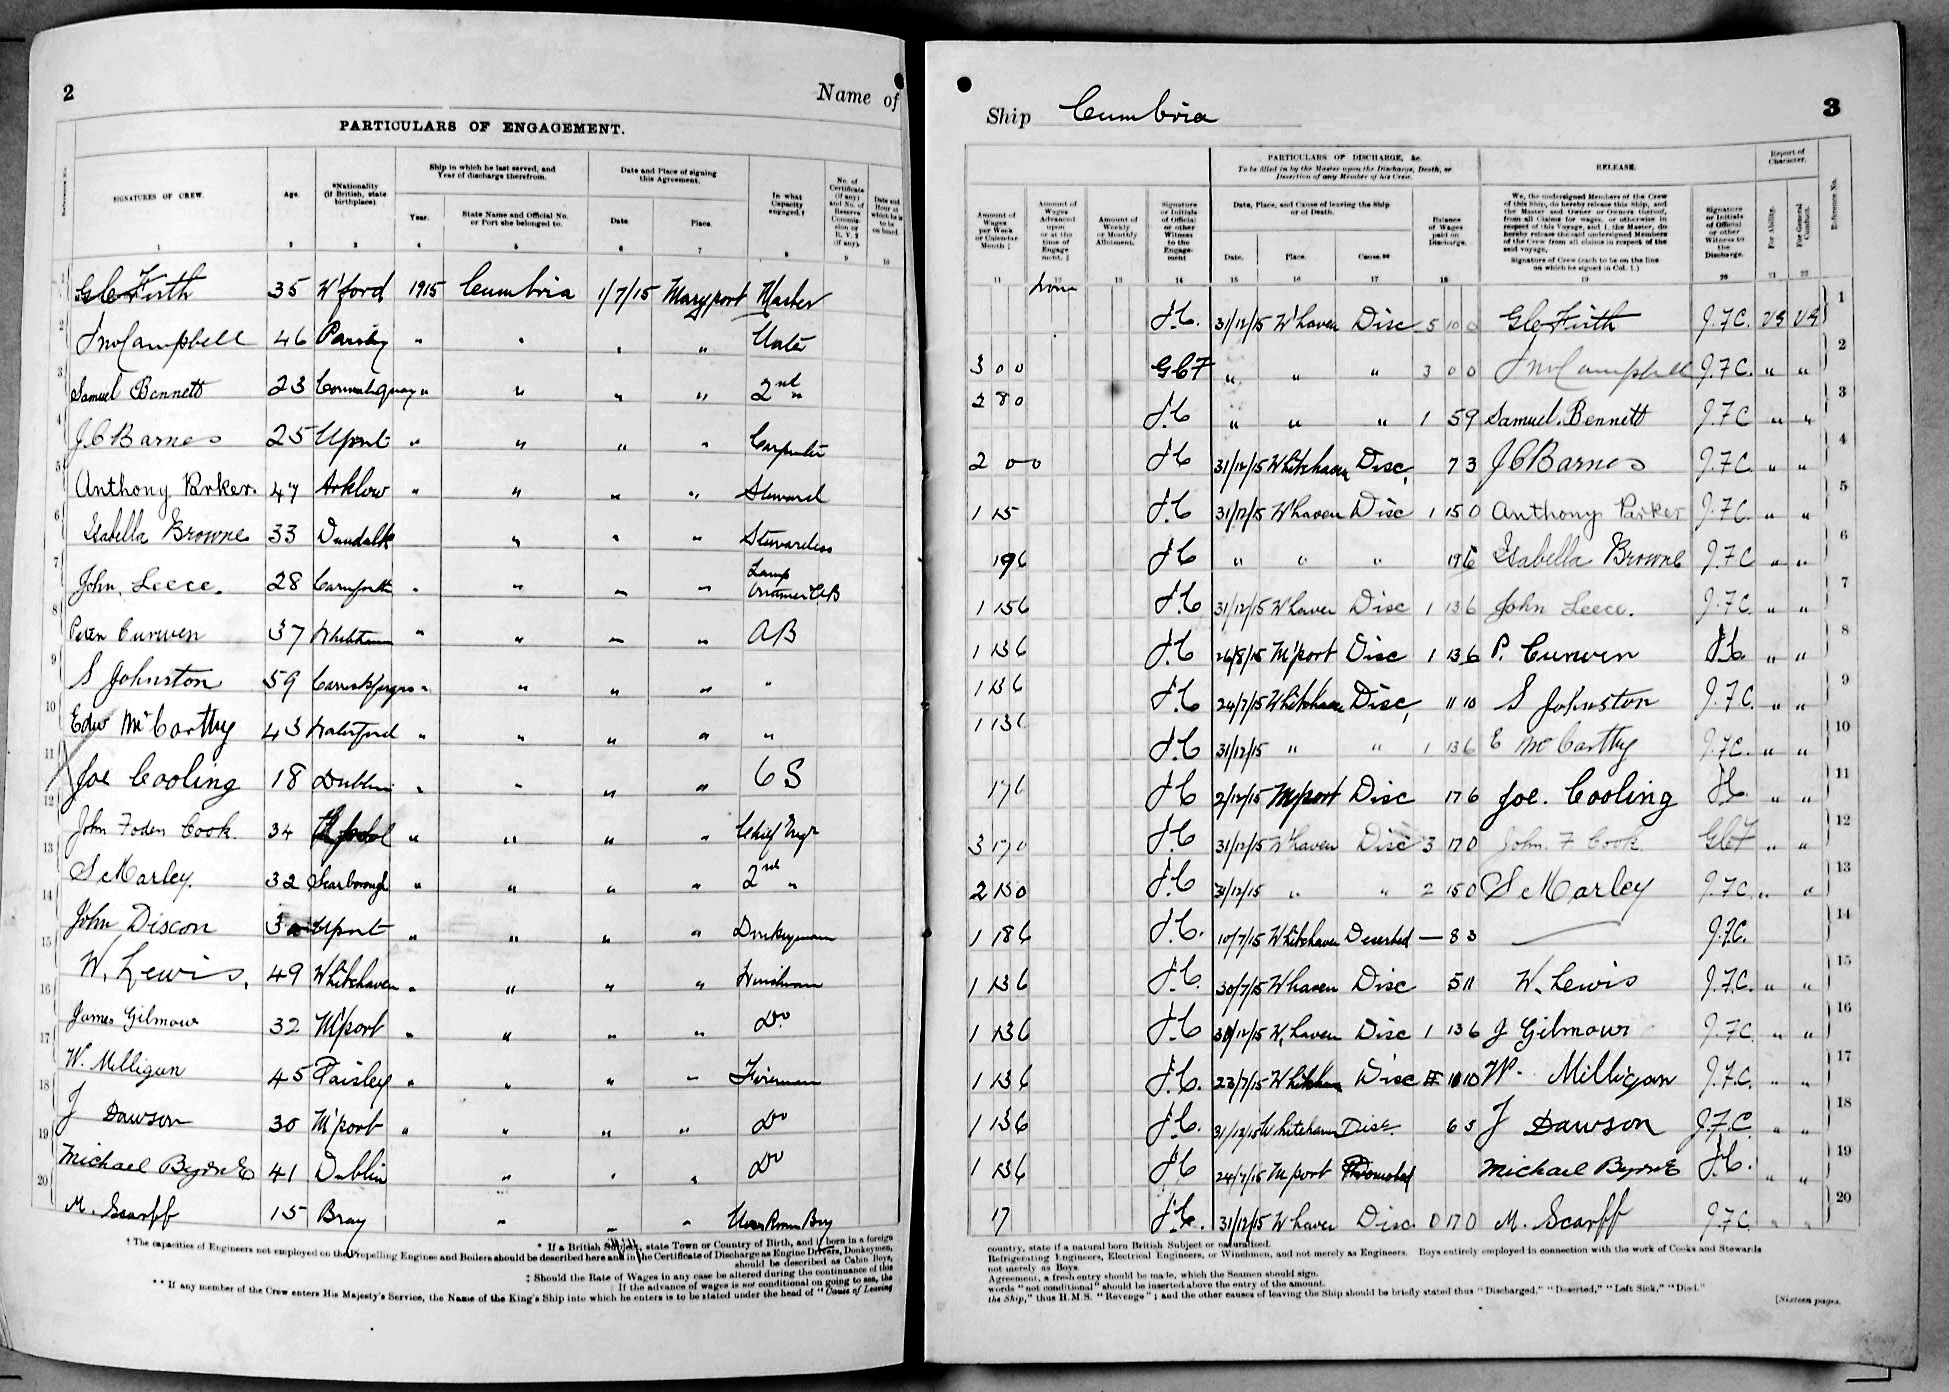 2
Name of
PARTICULARS OF ENGAGEMENT.
Reference No.
SIGNATURES OF CREW.
Age.
*Nationality (if British, state birthplace)
Ship in which he last served, and Year of discharge therefrom.
Year.
State Name and Official No. or Port she belonged to.
Date and Place of signing this Agreement.
Date.
Place.
In what Capacity engaged.†
No. of Certificate (if any) and No. of Reserve Commission or R.V.2 (if any).
Date and Hour at which he is to be on board.
1 2 3 4 5 6 7 8 9 10
1 G C Firth 35 W'ford 1915 Cumbria 1/7/15 Maryport Master
2 Jno Campbell 46 " " " " Mate
3 Samuel Bennett 23 Connahs Quay " " " " 2nd "
4 J C Barnes 25 " " " " Carpenter
5 Anthony Parker 47 Arklow " " " " Steward
6 Isabella Browne 33 Dundalk " " " Stewardess
7 John Leece. 28 Carnforth " " " " Lamp Trimmer & AB
8 Peter Curwen 37 " " " " AB
9 S Johnston 59 Carrickfergus " " " " "
10 Edw McCarthy 43 Waterford " " " " "
11 Joe Cooling 18 Dublin " " " " O S
12 John Foden Cook. 34 " " " " Chief Engr
13 S Marley. 32 Scarborough " " " " 2nd "
14 John Discon " " " " Donkeyman
15 W. Lewis, 49 Whitehaven " " " " Winchman
16 James Gilmour 32 M'port " " " " Do
17 W. Milligan 45 Paisley " " " " Fireman
18 J Dawson 30 M'port " " " " Do
19 Michael Byrne 41 Dublin " " " Do
20 M. Scarff 15 Bray " " " Mess Room Boy
* If a British Subject, state Town or Country of Birth, and if born in a foreign
† The capacities of Engineers not employed on the Propelling Engines and Boilers should be described here and in the Certificate of Discharge as Engine Drivers, Donkeymen,
should be described as Cabin Boys,
‡ Should the Rate of Wages in any case be altered during the continuance of this
If the advance of wages is not conditional on going to sea, the
** If any member of the Crew enters His Majesty's Service, the Name of the King's Ship into which he enters is to be stated under the head of "Cause of Leaving
Ship Cumbria
3
Amount of Wages per Week or Calendar Month ‡
Amount of Wages Advanced upon or at the time of Engagement. ‡
Amount of Weekly or Monthly Allotment.
Signature or Initials of Official or other Witness to the Engagement
PARTICULARS OF DISCHARGE, &c.
To be filled in by the Master upon the Discharge, Death, or Desertion of any Member of his Crew.
Date, Place, and Cause of leaving the Ship or of Death.
Date.
Place.
Cause.**
Balance of Wages paid on Discharge.
RELEASE.
We, the undersigned Members of the Crew of this Ship, do hereby release this Ship, and the Master and Owner or Owners thereof, from all Claims for wages, or otherwise in respect of this Voyage, and I, the Master, do hereby release the said undersigned Members of the Crew from all claims in respect of the said voyage.
Signature of Crew (each to be on the line on which he signed in Col. 1.)
Signature or Initials of Official or other Witness to the Discharge.
Report of Character.
For Ability.
For General Conduct.
Reference No.
11 12 13 14 15 16 17 18 19 20 21 22
J.C. 31/12/15 W'haven Disc 5 10 0 G C Firth J.F.C. VG VG 1
3 0 0 GCF " " " 3 0 0 Jno Campbell J.F.C. " " 2
2 8 0 J.C " " " 1 5 9 Samuel Bennett J.F.C " " 3
2 0 0 J C 31/12/15 Whitehaven Disc, 7 3 J C Barnes J.F.C. " " 4
1 15 J.C. 31/12/15 W'haven Disc 1 15 0 Anthony Parker J.F.C. " " 5
19 6 J C " " " 19 6 Isabella Browne J.F.C " " 6
1 15 6 J.C 31/12/15 W'haven Disc 1 13 6 John Leece. J.F.C. " " 7
1 13 6 J.C 26/8/15 M'port Disc 1 13 6 P. Curwen J.C. " " 8
1 13 6 J.C 24/7/15 Whitehaven Disc, 11 10 S Johnston J.F.C. " " 9
1 13 6 J.C 31/12/15 " " 1 13 6 E McCarthy J.F.C. " " 10
17 6 J C 2/12/15 M'port Disc 17 6 Joe. Cooling J.C. " " 11
3 17 0 J C 31/12/15 W'haven Disc 3 17 0 John. F Cook GCF " " 12
2 15 0 J.C 31/12/15 " " 2 15 0 S Marley J.F.C. " " 13
1 18 6 J.C. 10/7/15 Whitehaven Deserted — 8 3 J.F.C. 14
1 13 6 J.C. 30/7/15 W'haven Disc 5 11 W. Lewis J.F.C. " " 15
1 13 6 J.C 31/12/15 W.haven Disc 1 13 6 J Gilmour J.F.C. " " 16
1 13 6 J.C. 23/7/15 Whitehaven Disc 10 10 W. Milligan J.F.C. " " 17
1 13 6 J.C. 31/12/15 Whitehaven Disc. 6 5 J Dawson J.F.C. " " 18
1 13 6 J C 24/7/15 M'port Promoted Michael Byrne J.C. " " 19
17 J.C. 31/12/15 W'haven Disc. 0 17 0 M. Scarff J.F.C. " " 20
country, state if a natural born British Subject or naturalized.
Refrigerating Engineers, Electrical Engineers, or Winchmen, and not merely as Engineers. Boys entirely employed in connection with the work of Cooks and Stewards
not merely as Boys.
Agreement, a fresh entry should be made, which the Seamen should sign.
words "not conditional" should be inserted above the entry of the amount.
the Ship," thus H.M.S. "Revenge"; and the other causes of leaving the Ship should be briefly stated thus "Discharged," "Deserted," "Left Sick," "Died."
[Sixteen pages.